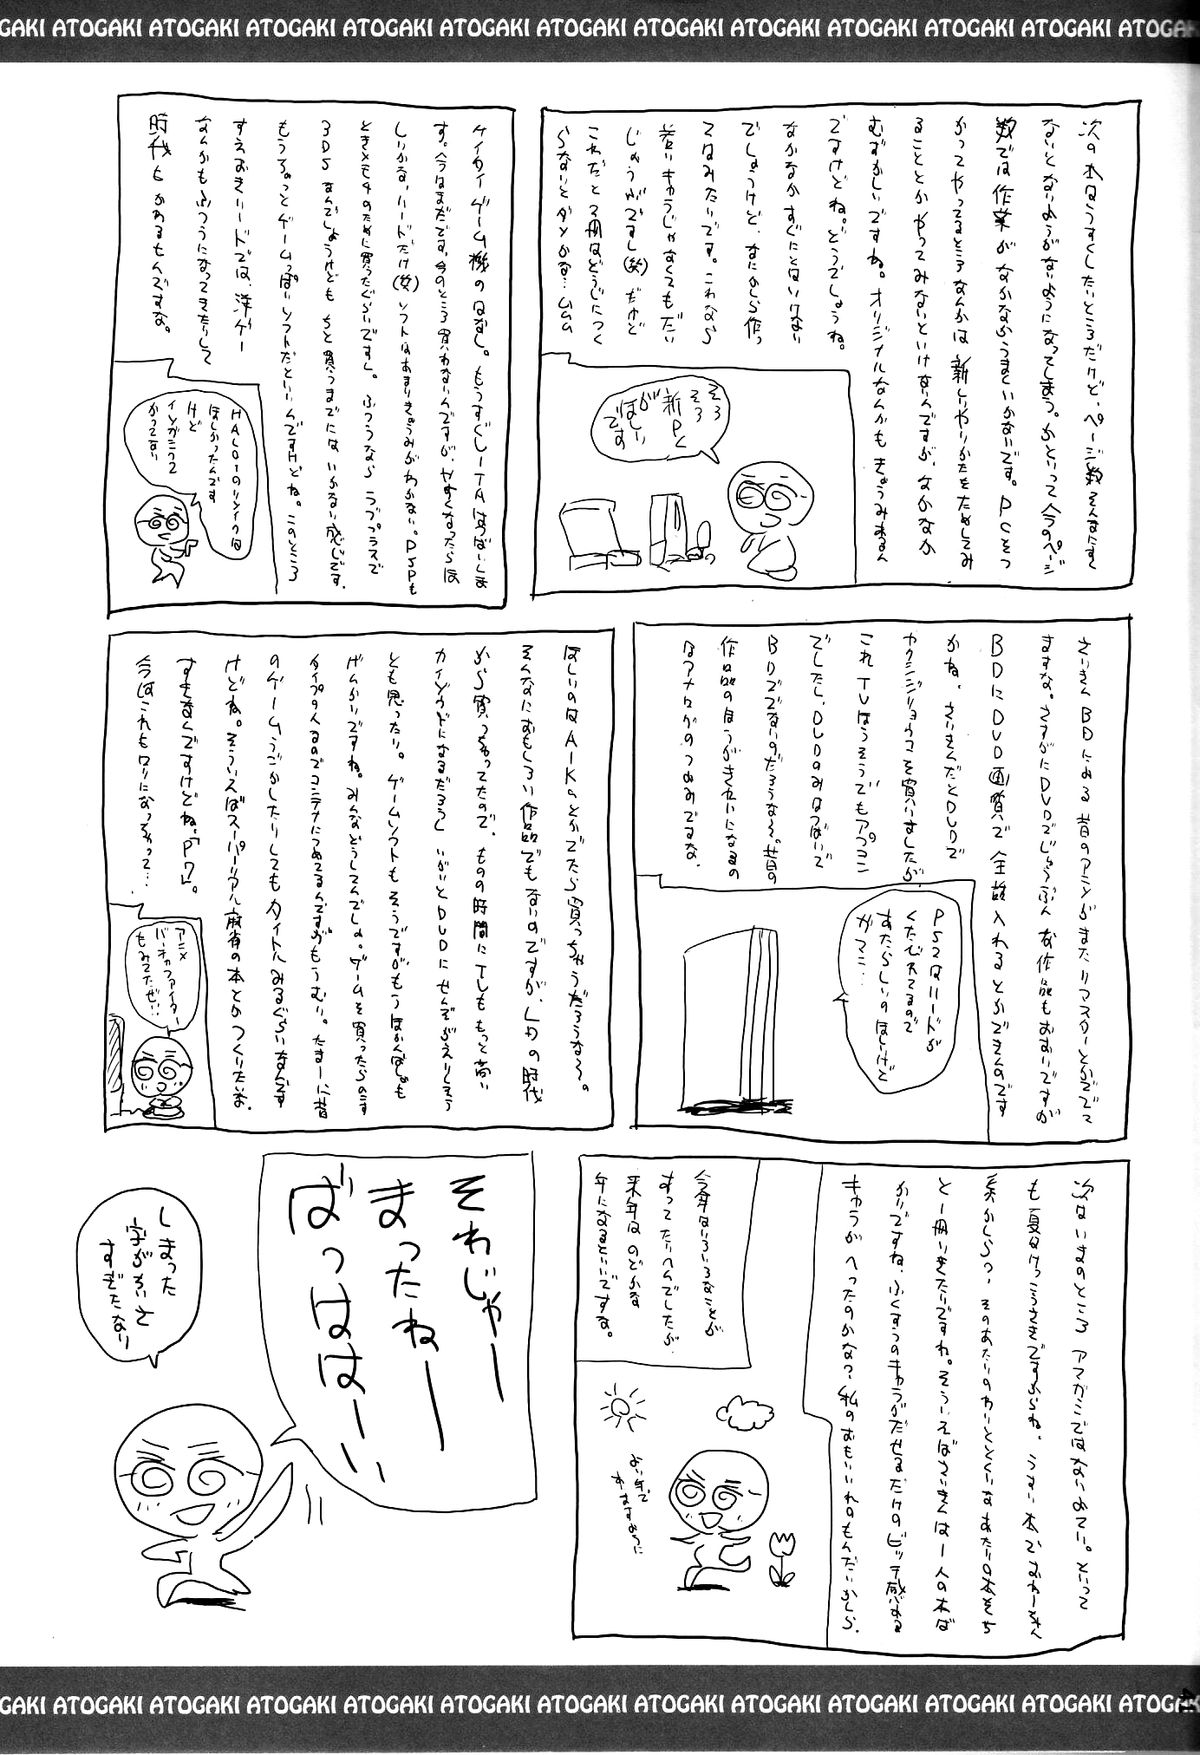 GAKI ATOGAKI ATOGAKI ATOGAKI ATOGAKI ATOGAKI ATOGAKI ATOGAKI ATOGAKI ATOGAKI ATOGAKI ATOGAKI ATOGA
次の本はうすくしたいところだけど、ページ数そんなにすく
ないとないようがないようになってしまう。かといって今のページ
数では作業がなかなかうまくいかないです。PCをつ
かってやってるところなんかは新しいやりかたをためしてみ
ることとかやってみないといけないんですが、なかなか
むずかしいですね。オリジナルなんかもきょうみあるん
ですけどね。どうでしょうね。
なかなかすぐにとはいけない
でしょうけど、なにかしら作っ
てはみたいです。これなら
若いキャラじゃなくてもだい
じょうぶですし(笑)だけど
これだと2冊はどうじにつく
らないとダメかな…ムムム
そろ
そろ
新PC
がほしい
です
ケイタイゲーム機のはなし。もうすぐVITAはつばいしま
す。今はまだです。今のところ買わないんですが、やすくなったらほ
しいかな、ハードだけ(笑)ソフトはあまりきょうみがわかない。PSPも
ときメモ4のために買ったぐらいですし。ふつうならラブプラスで
3DSなんでしょうけどもちと買うまでにはいかない感じです。
もうちょっとゲームっぽいソフトだといいんですけどね。このところ
すえおきハードでは、洋ゲー
なんかもふつうになってきたりして
時代もかわるもんですな。
HALO1のリメイクは
ほしかったんです
けど
インガミック2
かってない
さいきんBDによる昔のアニメがまたリマスターとかででて
ますな。さすがにDVDでじゅうぶんな作品もおおいですが
BDにDVD画質で全話入れるとかできんのです
かね。さいきんだとDVDで
ヤクシジョウコを買いましたが、
これTVほうそうでもアプコン
でしたし、DVDのみはつばいで
BDででないのだろうな～。昔の
作品のほうがきれいになるの
はアナログのつよみですな。
PS2はハードが
くたびれてるので
あたらしいのほしいけど
ガマン…
ほしいのはAIKaとかでたら買っちゃうだろうな～。
そんなにおもしろい作品でもないのですが、LDの時代
から買っちゃってたので。ものの時間にTしももっと高い
カイゾウドになるだろうし、いがいとDVDにせんぞがえりしそう
とも思ったり。ゲームソフトもそうですがもうほかんばしょも
げんかいですね。みんなどうしてんでしょ。ゲームを買ったらのこす
タイプの人なのでコンテナにつめてるんですがもうむり。たまーに昔
のゲームうごかしたりしてもタイトルみるぐらいなんです
けどね。そういえばスーパーリアル麻雀の本とかつくりたいな。
すきなんですけどね、「P7」。
今はこれもロリになっちゃって…
アニメ
バーチャファイター
もみてたぜ!!
次はいまのところアマガミではないよてい。といって
も夏はけっこうさきですからね。うすい本でおねーさん
系かしらっ、そのあたりのわりととくいなあたりの本をち
と一冊いきたいですね。そういえばさいきんは一人の本ば
かりですね。ふくすうのキャラがだせるだけのビッチ感ある
キャラがへったのかな?私のおもいいれのもんだいかしら。
今年はいろいろなことが
すってたいへんでしたが、
来年はのどかな
年になるといいですな。
よい年で
ありますように
それじゃー
まったねー
ばっははーい
しまった
字がかいと
すぎたなり
GAKI ATOGAKI ATOGAKI ATOGAKI ATOGAKI ATOGAKI ATOGAKI ATOGAKI ATOGAKI ATOGAKI ATOGAKI ATOGAKI ATOGAK